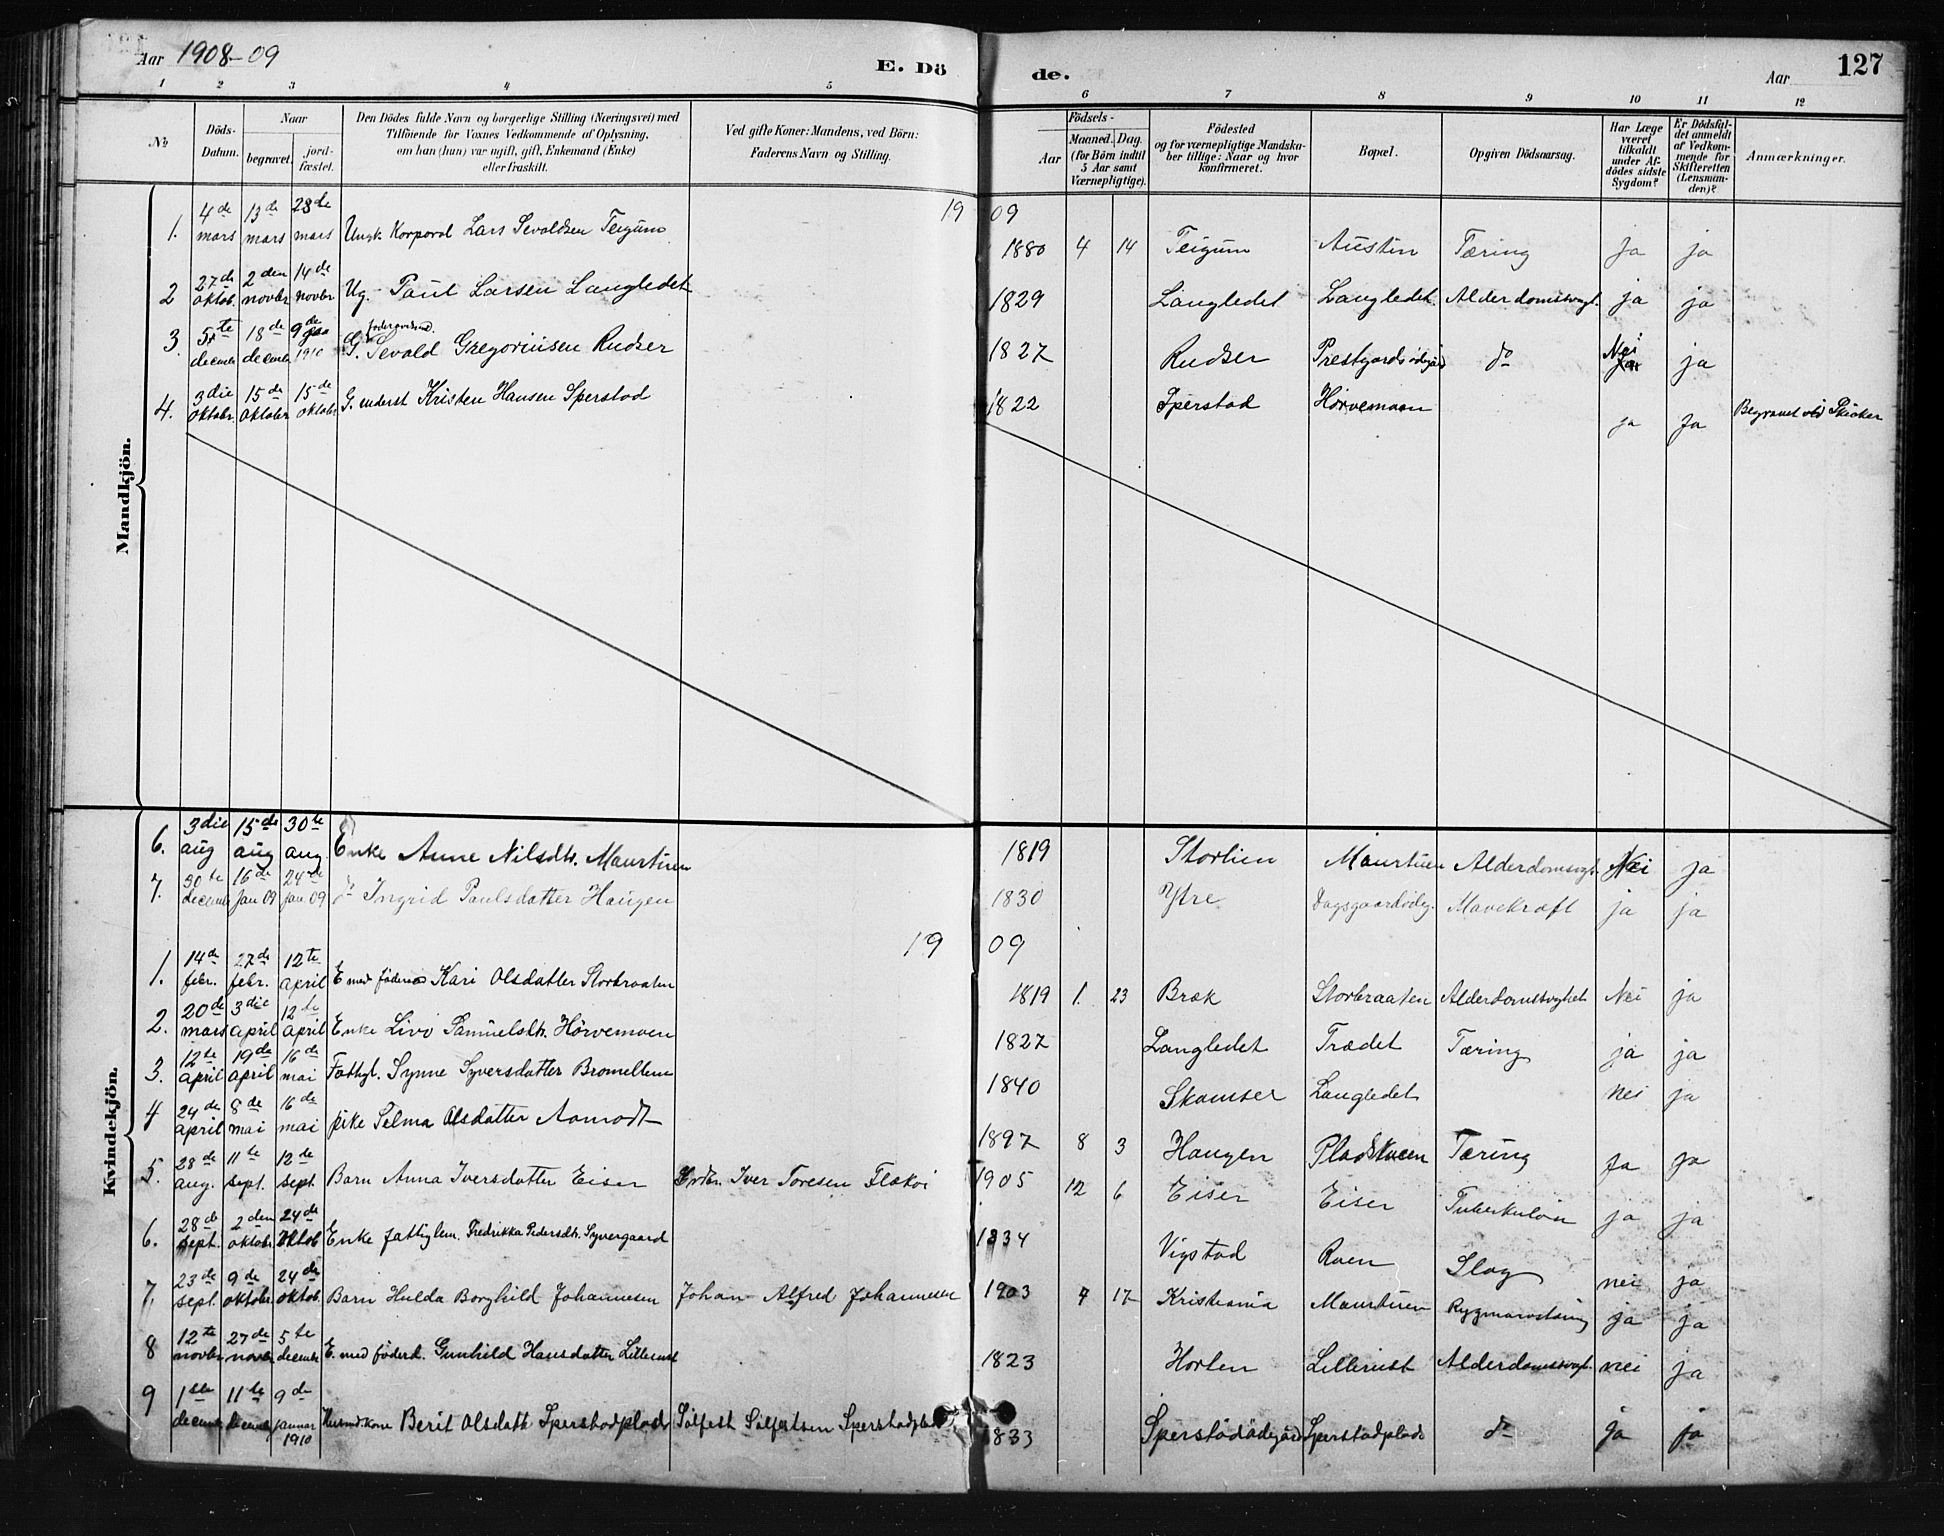 Aar 1908-09
E. Dö
de.
Aar
127
1 2 3 4 5 6 7 8 9 10 11 12
No
Döds-
Datum.
Naar
begravet.
jord-
fæstet.
Den Dödes fulde Navn og borgerlige Stilling (Næringsvei) med
Tilföiende for Voxnes Vedkommende af Oplysning,
om han (hun) var ugift, gift, Enkemand (Enke)
eller fraskilt.
Ved gifte Koner: Mandens, ved Börn:
Faderens Navn og Stilling.
Födsels-
Aar
Maaned. Dag.
(for Börn indtil
5 Aar samt
Værnepligtige).
Födested
og for værnepligtige Mandska-
ber tillige: Naar og hvor
konfirmeret.
Bopæl.
Opgiven Dödsaarsag.
Har Læge
været
tilkaldt
under Af-
dödes sidste
Sygdom?
Er Dödsfal-
det anmeldt
af Vedkom-
mende for
Skifteretten
(Lensman-
den)?
Anmærkninger.
Mandkjön.
19 09
1. 4de mars 13de mars 28de mars Ungk. Korporal Lars Sevaldsen Teigum 1880 4 14 Teigum Austin Tæring Ja ja
2 27de oktob. 2den novbr 14de novbr Ug. Paul Larsen Langledet 1829 Langledet Langledet Alderdomsvagt. ja ja
3 5te decembr 18de decembr 9de 1910 G. föderaadsmd. Sevald Gregoriusen Rudser 1827 Rudser Prestgardsödegård do Nei ja
4. 3die oktobr. 15de oktobr 15de oktobr G. underst Kristen Hansen Sperstad 1822 Sperstad Hörvemoen ja Ja Begravet ved Skeaker
Kvindekjön.
6. 3die aug 15de aug 30te aug Enke Anne Nilsdtr. Maurtuen 1819 Storlien Maurtuen Alderdomsvgt. Nei ja
7. 30te decembr 16de Jan 09 24de jan 09 do Ingrid Paulsdatter Haugen 1830 Ytre Dagsgaardödeg. Mavekræft ja ja
19 09
1. 14de febr. 27de febr. 12te april E med föderaad Kari Olsdatter Storbraaten 1819 1. 23 Bræk Storbraaten Alderdomssvaghet Nei ja
2. 20de mars 3die april 12te april Enke Livo Samuelsdtr. Hörvemoen 1827 Langledet Trædet Tæring ja ja
3. 12te april 19de april 16de mai Fattigl. Synne Syversdatter Bromellem 1840 Skamser Langledet nei ja
4 24de april 8de mai 16de mai pike Selma Olsdatter Aamodt 1897 8 3 Haugen Pladskueen Tæring Ja ja
5. 28de aug. 11te sept. 12de sept. Barn Anna Iversdatter Eiser Iver Toresen Flækøi 1905 12 6 Eiser Eiser Tuberkulose ja ja
6. 28de sept. 2den oktobr. 24de oktob Enke fattiglem. Fredrikka Pedersdtr. Syvergaard 1834 Vigstad Roen Slag nei ja
7. 23de sept. 9de oktobr. 24de oktob. Barn Hulda Borghild Johannesen Johan Alfred Johannesen 1903 7 17 Kristiania Maurtuen ja ja
8 12te novbr 27de novbr 5te decembr E. med föderd. Gunhild Hansdatter Lillerust 1823 Horten Lillerust Alderdomssvagh. nei ja
9 1ste decembr 11te decembr 9de januar 1910 Husmdkone Berit Olsdatt. Sperstadplads Sølfest Sølfestsen Sperstadplads 1833 Sperstadödegård Sperstadplads do Ja ja